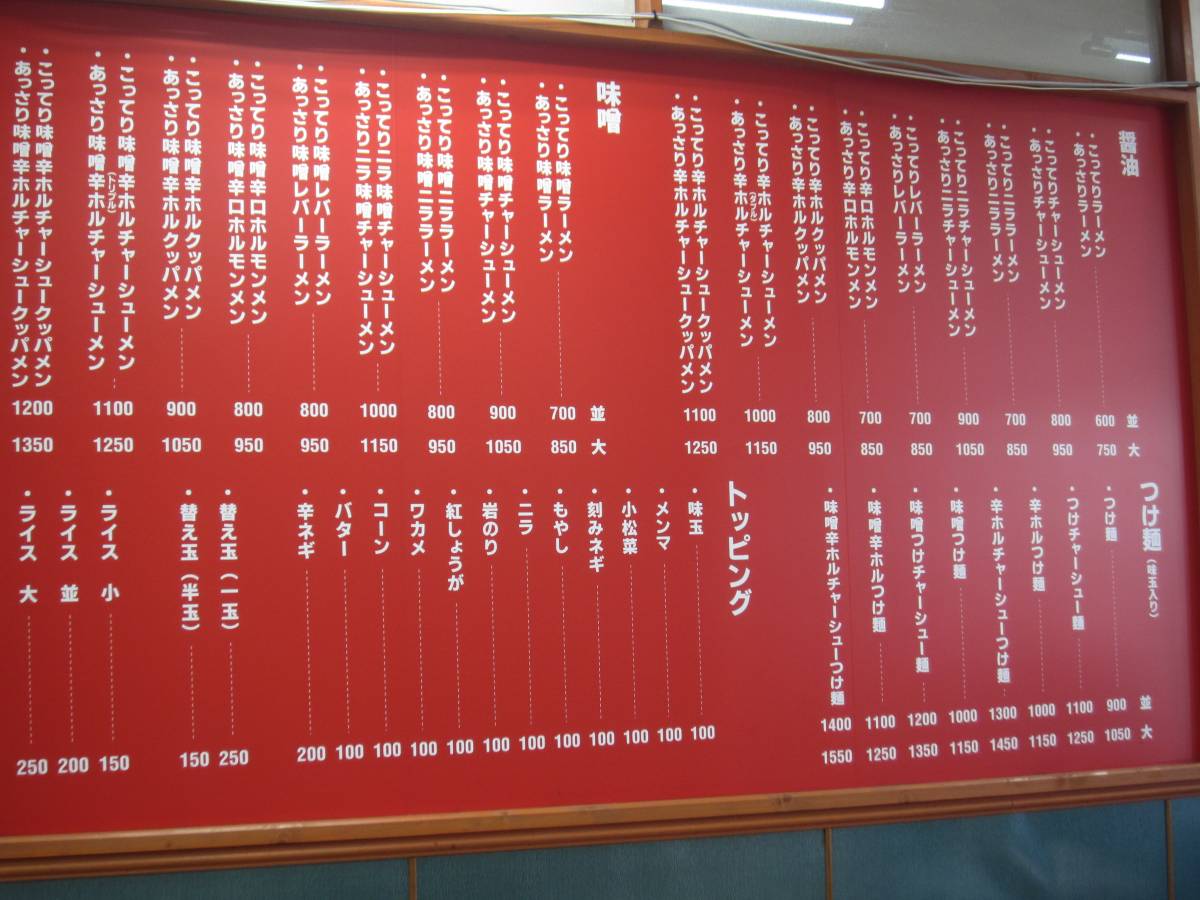 醤油
・こってりラーメン
・あっさりラーメン
600
750
・こってりチャーシューメン
・あっさりチャーシューメン
800
950
・こってりニララーメン
・あっさりニララーメン
700
850
・こってりニラチャーシューメン
・あっさりニラチャーシューメン
900
1050
・こってりレバーラーメン
・あっさりレバーラーメン
700
850
・こってり辛口ホルモンメン
・あっさり辛口ホルモンメン
700
850
・こってり辛ホルクッパメン
・あっさり辛ホルクッパメン
800
950
・こってり辛ホルチャーシューメン
(ダブル)
・あっさり辛ホルチャーシューメン
1000
1150
・こってり辛ホルチャーシュークッパメン
・あっさり辛ホルチャーシュークッパメン
1100
1250
並
大
味噌
・こってり味噌ラーメン
・あっさり味噌ラーメン
700
850
・こってり味噌チャーシューメン
・あっさり味噌チャーシューメン
900
1050
・こってり味噌ニララーメン
・あっさり味噌ニララーメン
800
950
・こってりニラ味噌チャーシューメン
・あっさりニラ味噌チャーシューメン
1000
1150
・こってり味噌レバーラーメン
・あっさり味噌レバーラーメン
800
950
・こってり味噌辛口ホルモンメン
・あっさり味噌辛口ホルモンメン
800
950
・こってり味噌辛ホルクッパメン
・あっさり味噌辛ホルクッパメン
900
1050
・こってり味噌辛ホルチャーシューメン
(トリプル)
・あっさり味噌辛ホルチャーシューメン
1100
1250
・こってり味噌辛ホルチャーシュークッパメン
・あっさり味噌辛ホルチャーシュークッパメン
1200
1350
並
大
つけ麺(味玉入り)
・つけ麺
900
1050
・つけチャーシュー麺
1100
1250
・辛ホルつけ麺
1000
1150
・辛ホルチャーシューつけ麺
1300
1450
・味噌つけ麺
1000
1150
・味噌つけチャーシュー麺
1200
1350
・味噌辛ホルつけ麺
1100
1250
・味噌辛ホルチャーシューつけ麺
1400
1550
並
大
トッピング
・味玉 100
・メンマ 100
・小松菜 100
・刻みネギ 100
・もやし 100
・ニラ 100
・岩のり 100
・紅しょうが 100
・ワカメ 100
・コーン 100
・バター 100
・辛ネギ 200
・替え玉(一玉) 250
・替え玉(半玉) 150
・ライス 小 150
・ライス 並 200
・ライス 大 250